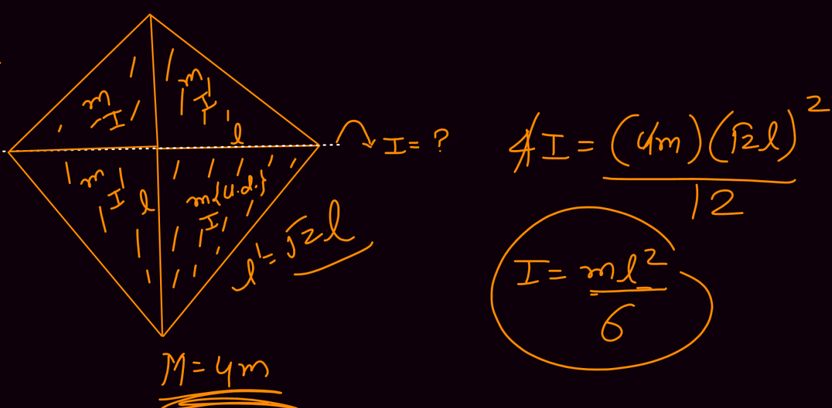 m
I
m
I
l
I = ?
m
I
l
m{u.d.}
I
l' = √2 l
M = 4m
4I = (4m)(√2l)²
12
I = ml²
6